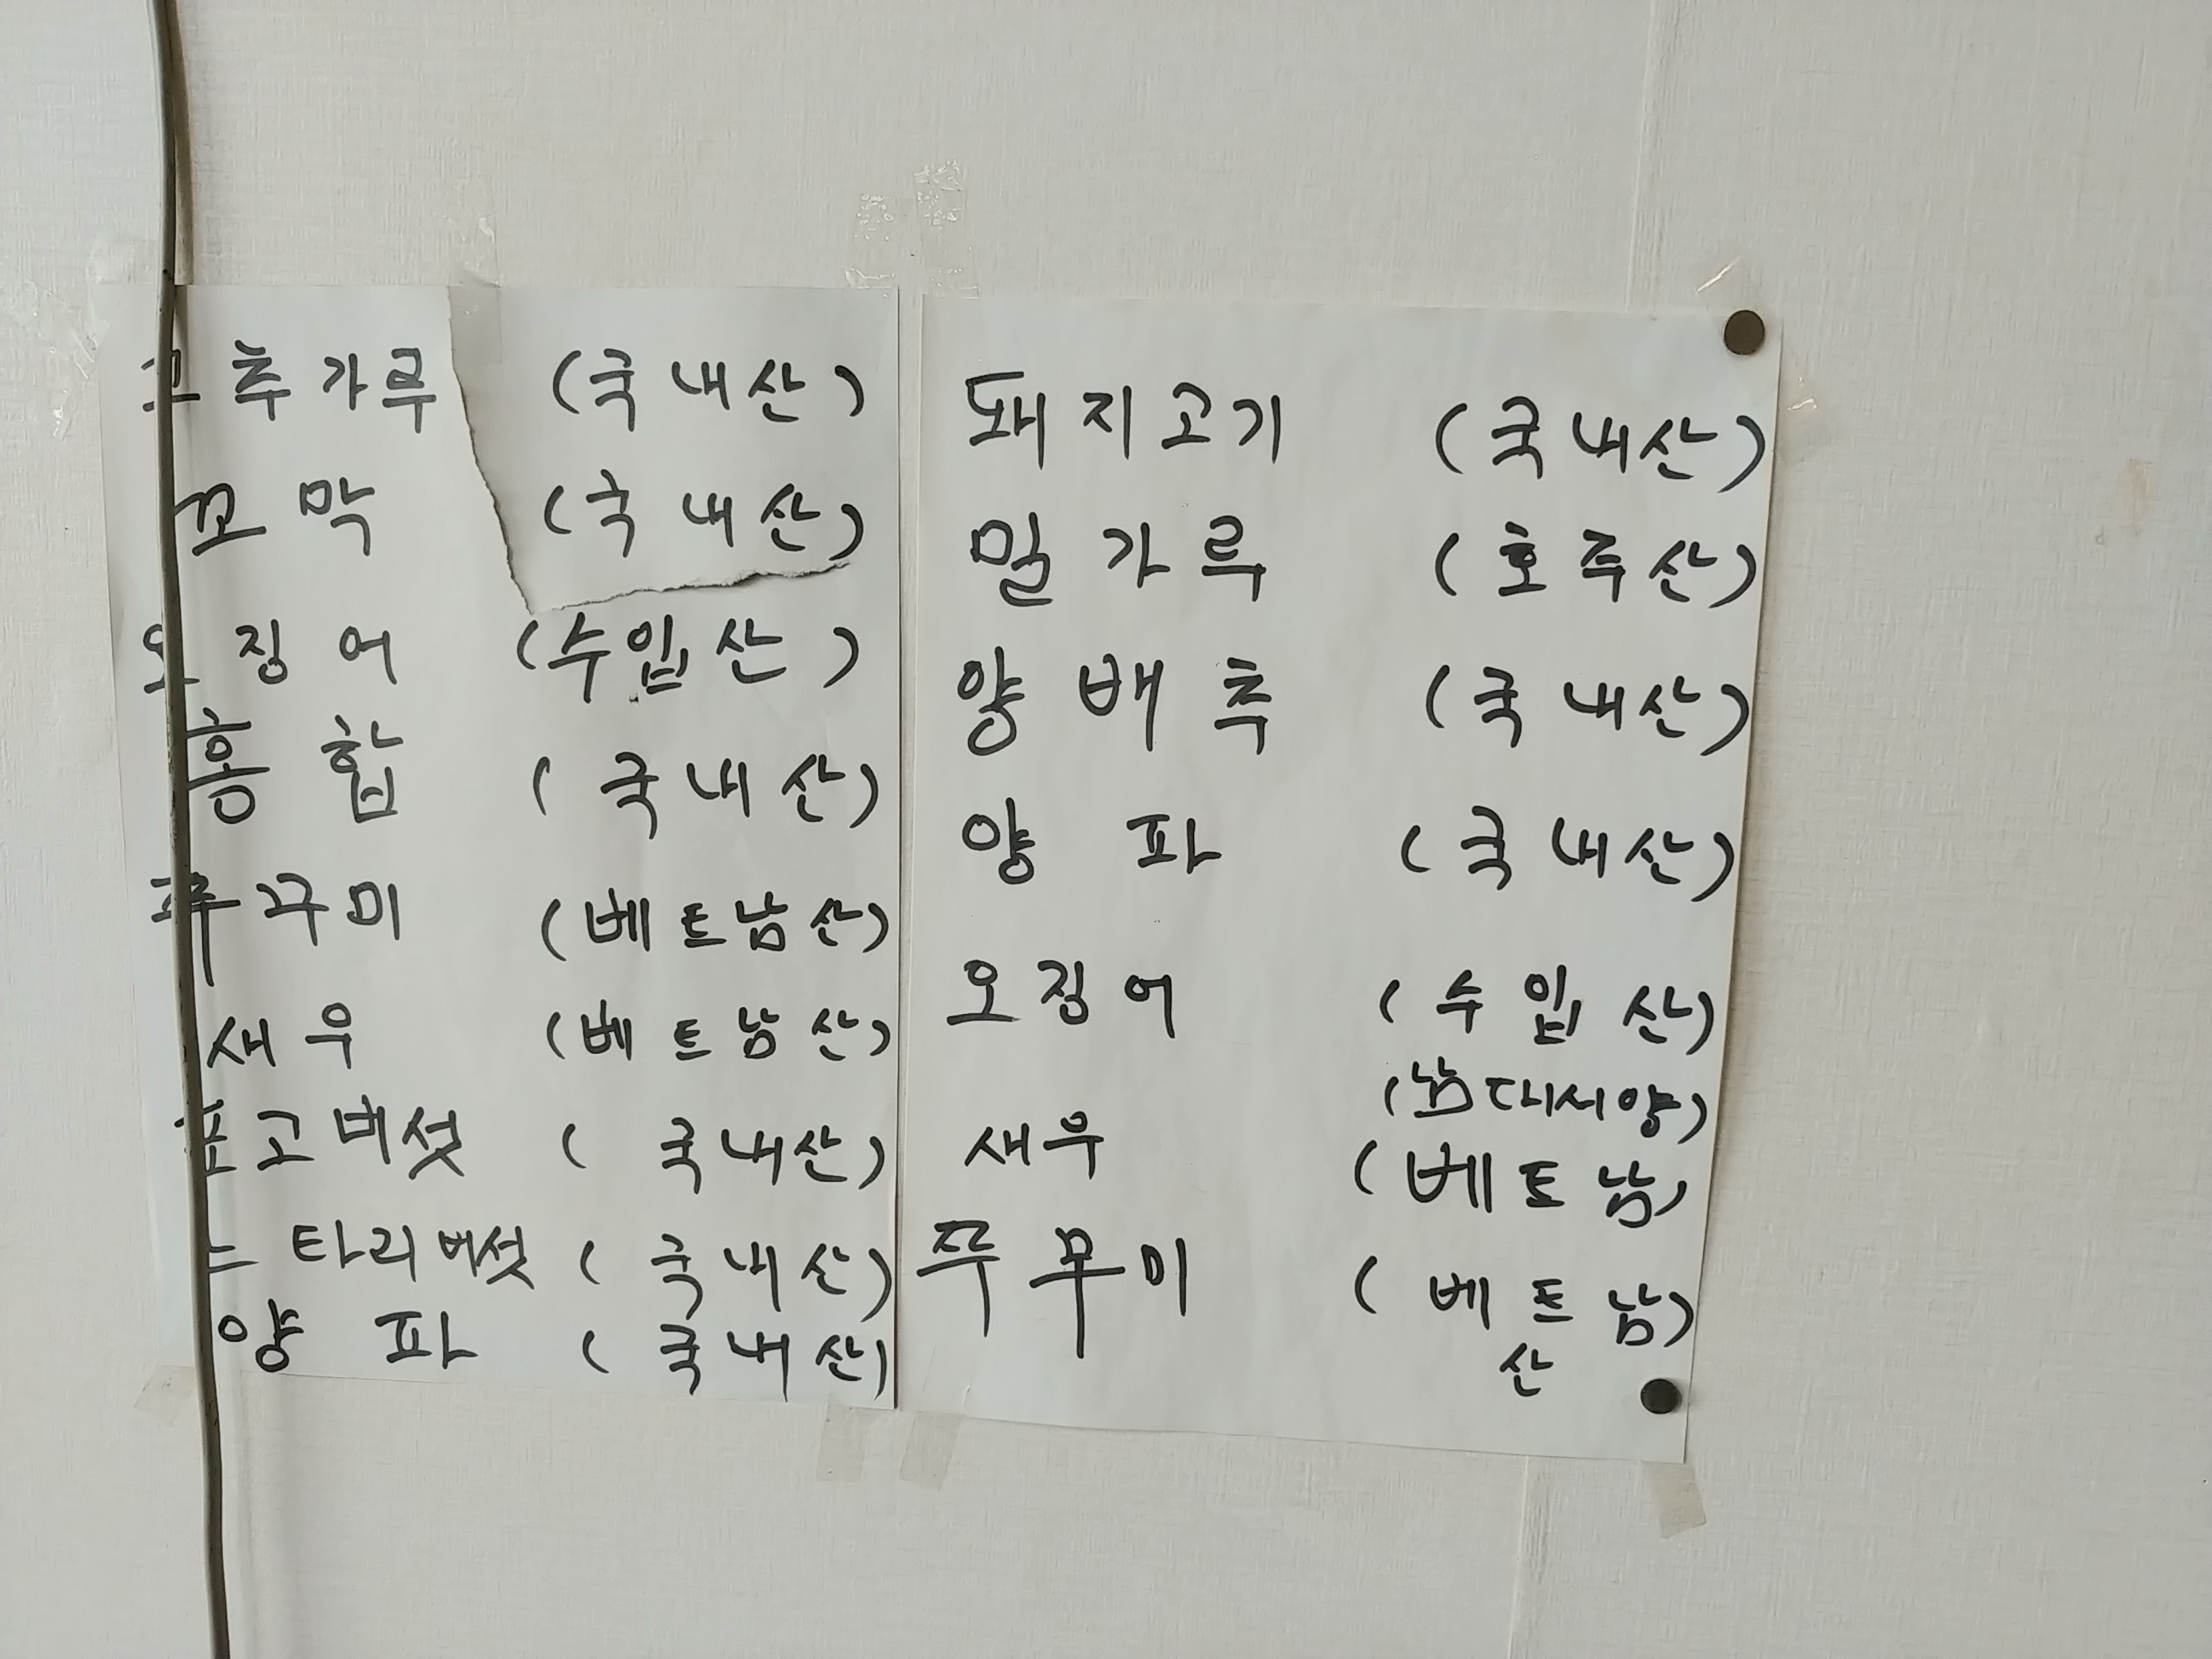 고추가루 (국내산)
꼬막 (국내산)
오징어 (수입산)
홍합 (국내산)
쭈꾸미 (베트남산)
새우 (베트남산)
표고버섯 (국내산)
느타리버섯 (국내산)
양파 (국내산)
돼지고기 (국내산)
밀가루 (호주산)
양배추 (국내산)
양파 (국내산)
오징어 (수입산)
(남대서양)
새우 (베트남)
쭈꾸미 (베트남)
산